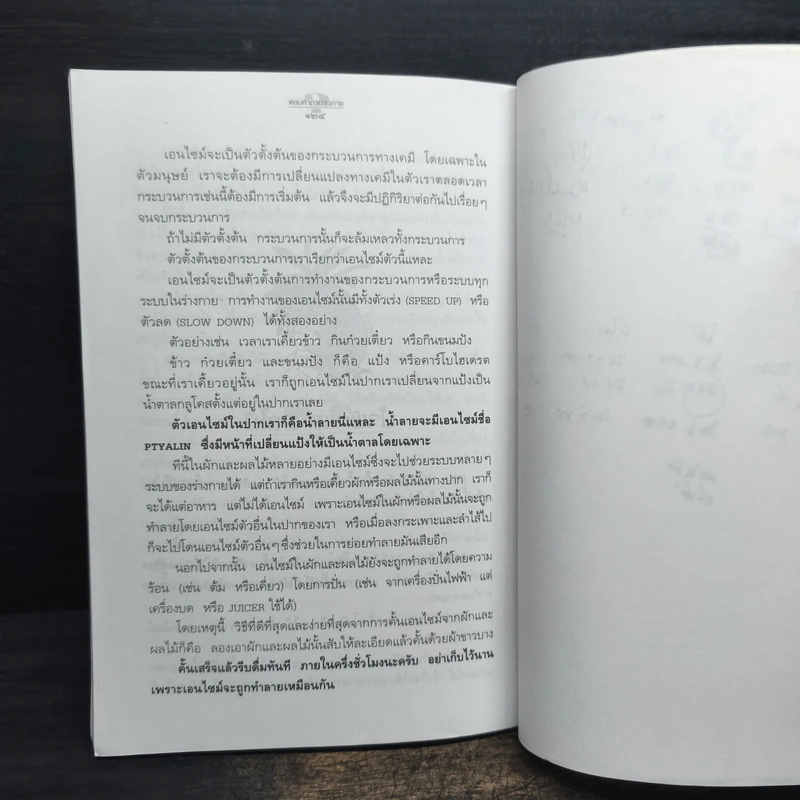 ตอบคำถามสุขภาพ
๑๒๔
เอนไซม์จะเป็นตัวตั้งต้นของกระบวนการทางเคมี โดยเฉพาะใน
ตัวมนุษย์ เราจะต้องมีการเปลี่ยนแปลงทางเคมีในตัวเราตลอดเวลา
กระบวนการเช่นนี้ต้องมีการเริ่มต้น แล้วจึงจะมีปฏิกิริยาต่อกันไปเรื่อยๆ
จนจบกระบวนการ
ถ้าไม่มีตัวตั้งต้น กระบวนการนั้นก็จะล้มเหลวทั้งกระบวนการ
ตัวตั้งต้นของกระบวนการเราเรียกว่าเอนไซม์ตัวนี้แหละ
เอนไซม์จะเป็นตัวตั้งต้นการทำงานของกระบวนการหรือระบบทุก
ระบบในร่างกาย การทำงานของเอนไซม์นั้นมีทั้งตัวเร่ง (SPEED UP) หรือ
ตัวลด (SLOW DOWN) ได้ทั้งสองอย่าง
ตัวอย่างเช่น เวลาเราเคี้ยวข้าว กินก๋วยเตี๋ยว หรือกินขนมปัง
ข้าว ก๋วยเตี๋ยว และขนมปัง ก็คือ แป้ง หรือคาร์โบไฮเดรต
ขณะที่เราเคี้ยวอยู่นั้น เราก็ถูกเอนไซม์ในปากเราเปลี่ยนจากแป้งเป็น
น้ำตาลกลูโคสตั้งแต่อยู่ในปากเราเลย
ตัวเอนไซม์ในปากเราก็คือน้ำลายนี่แหละ น้ำลายจะมีเอนไซม์ชื่อ
PTYALIN ซึ่งมีหน้าที่เปลี่ยนแป้งให้เป็นน้ำตาลโดยเฉพาะ
ทีนี้ในผักและผลไม้หลายอย่างมีเอนไซม์ซึ่งจะไปช่วยระบบหลายๆ
ระบบของร่างกายได้ แต่ถ้าเรากินหรือเคี้ยวผักหรือผลไม้นั้นทางปาก เราก็
จะได้แต่อาหาร แต่ไม่ได้เอนไซม์ เพราะเอนไซม์ในผักหรือผลไม้นั้นจะถูก
ทำลายโดยเอนไซม์ตัวอื่นในปากของเรา หรือเมื่อลงกระเพาะและลำไส้ไป
ก็จะไปโดนเอนไซม์ตัวอื่นๆ ซึ่งช่วยในการย่อยทำลายมันเสียอีก
นอกไปจากนั้น เอนไซม์ในผักและผลไม้ยังจะถูกทำลายได้โดยความ
ร้อน (เช่น ต้ม หรือเคี่ยว) โดยการปั่น (เช่น จากเครื่องปั่นไฟฟ้า แต่
เครื่องบด หรือ JUICER ใช้ได้)
โดยเหตุนี้ วิธีที่ดีที่สุดและง่ายที่สุดจากการคั้นเอนไซม์จากผักและ
ผลไม้ก็คือ ลองเอาผักและผลไม้นั้นสับให้ละเอียดแล้วคั้นด้วยผ้าขาวบาง
คั้นเสร็จแล้วรีบดื่มทันที ภายในครึ่งชั่วโมงนะครับ อย่าเก็บไว้นาน
เพราะเอนไซม์จะถูกทำลายเหมือนกัน